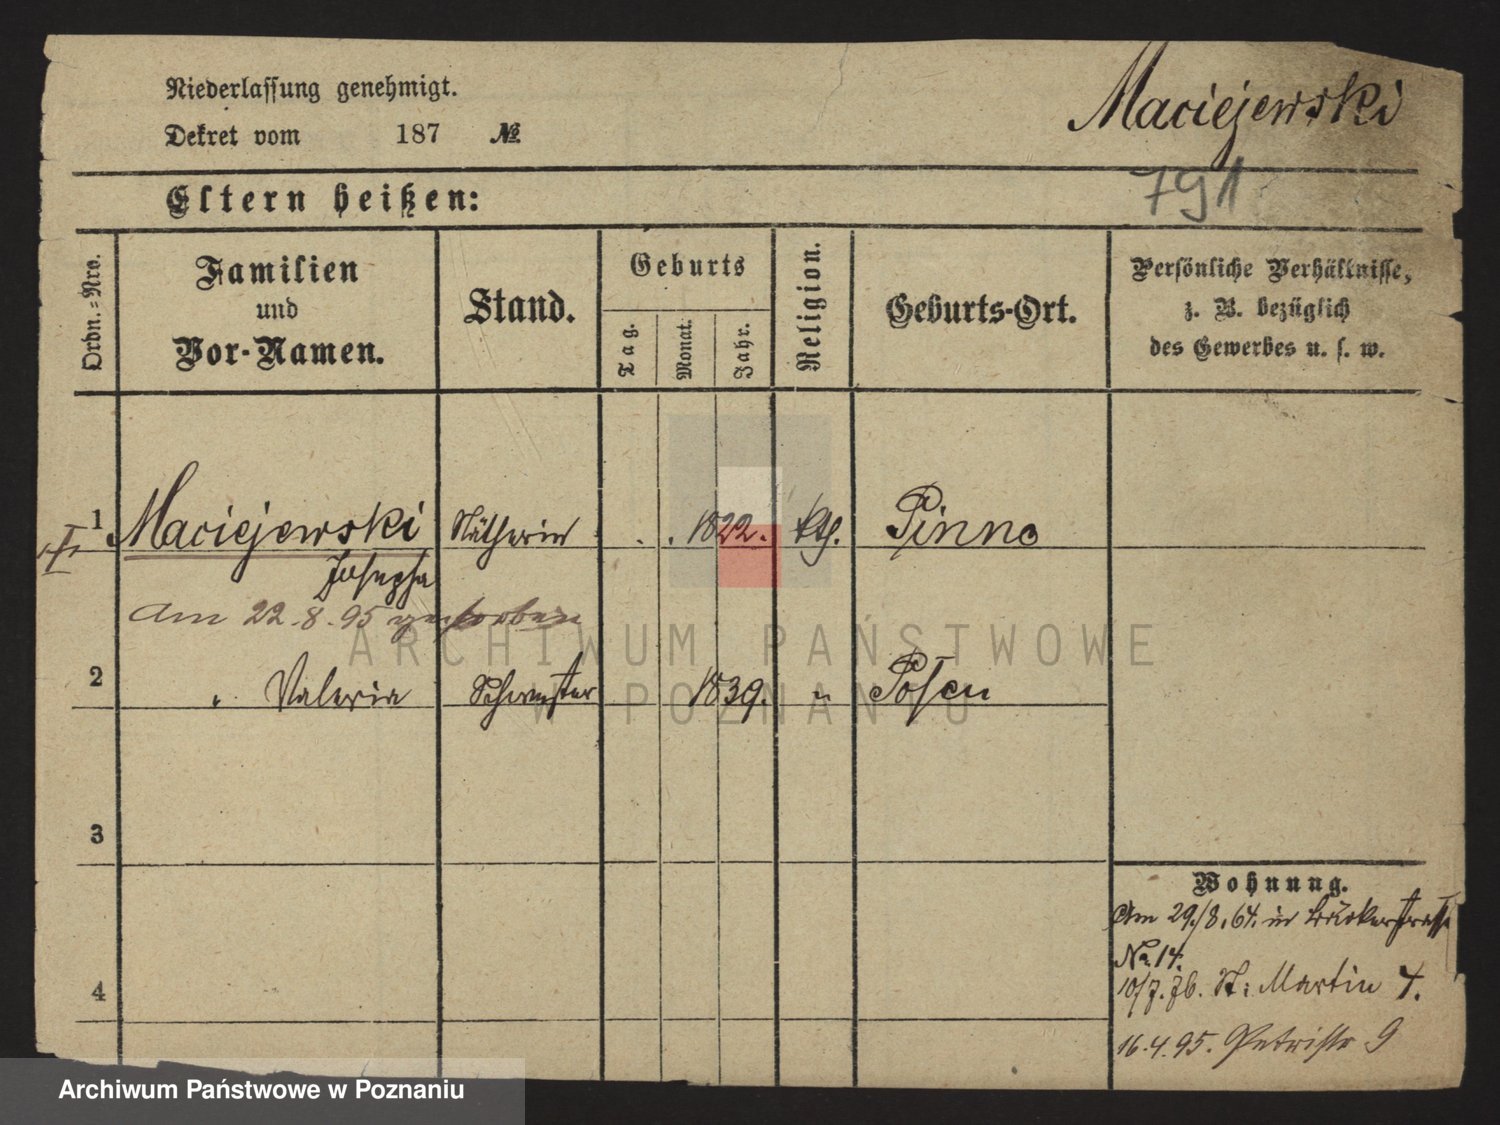 Niederlassung genehmigt.
Dekret vom 187 №
Maciejewski
791
Eltern heißen:
Ordn.=Nro.
Familien
und
Vor-Namen.
Stand.
Geburts
Tag.
Monat.
Jahr.
Religion.
Geburts-Ort.
Persönliche Verhältnisse,
z. B. bezüglich
des Gewerbes u. s. w.
1 Maciejewski Nätherin . . 1822. kth. Pinne
Josepha
Am 22.8.95 gestorben
2 " Valeria Schwester 1839. " Posen
3
4
Wohnung.
Am 29/8.64. in Bäckerstrasse
No. 14.
10/7. 76. St: Martin 4.
16.4.95. Petristr 9
ARCHIWUM PAŃSTWOWE
W POZNANIU
Archiwum Państwowe w Poznaniu